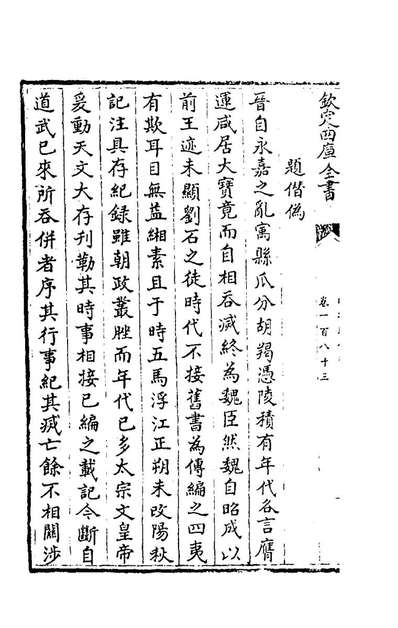 欽定四庫全書
卷一百八十三
題僭偽
晉自永嘉之亂寓縣瓜分胡羯憑陵積有年代各言膺
運咸居大寶竟而自相吞滅終為魏臣然魏自昭成以
前王迹未顯劉石之徒時代不接舊書為傳編之四夷
有欺耳目無益緗素且于時五馬浮江正朔未改陽秋
記注具存紀錄雖朝政叢脞而年代已多太宗文皇帝
爰動天文大存刊勒其時事相接已編之載記今斷自
道武已來所吞併者序其行事紀其滅亡餘不相關涉